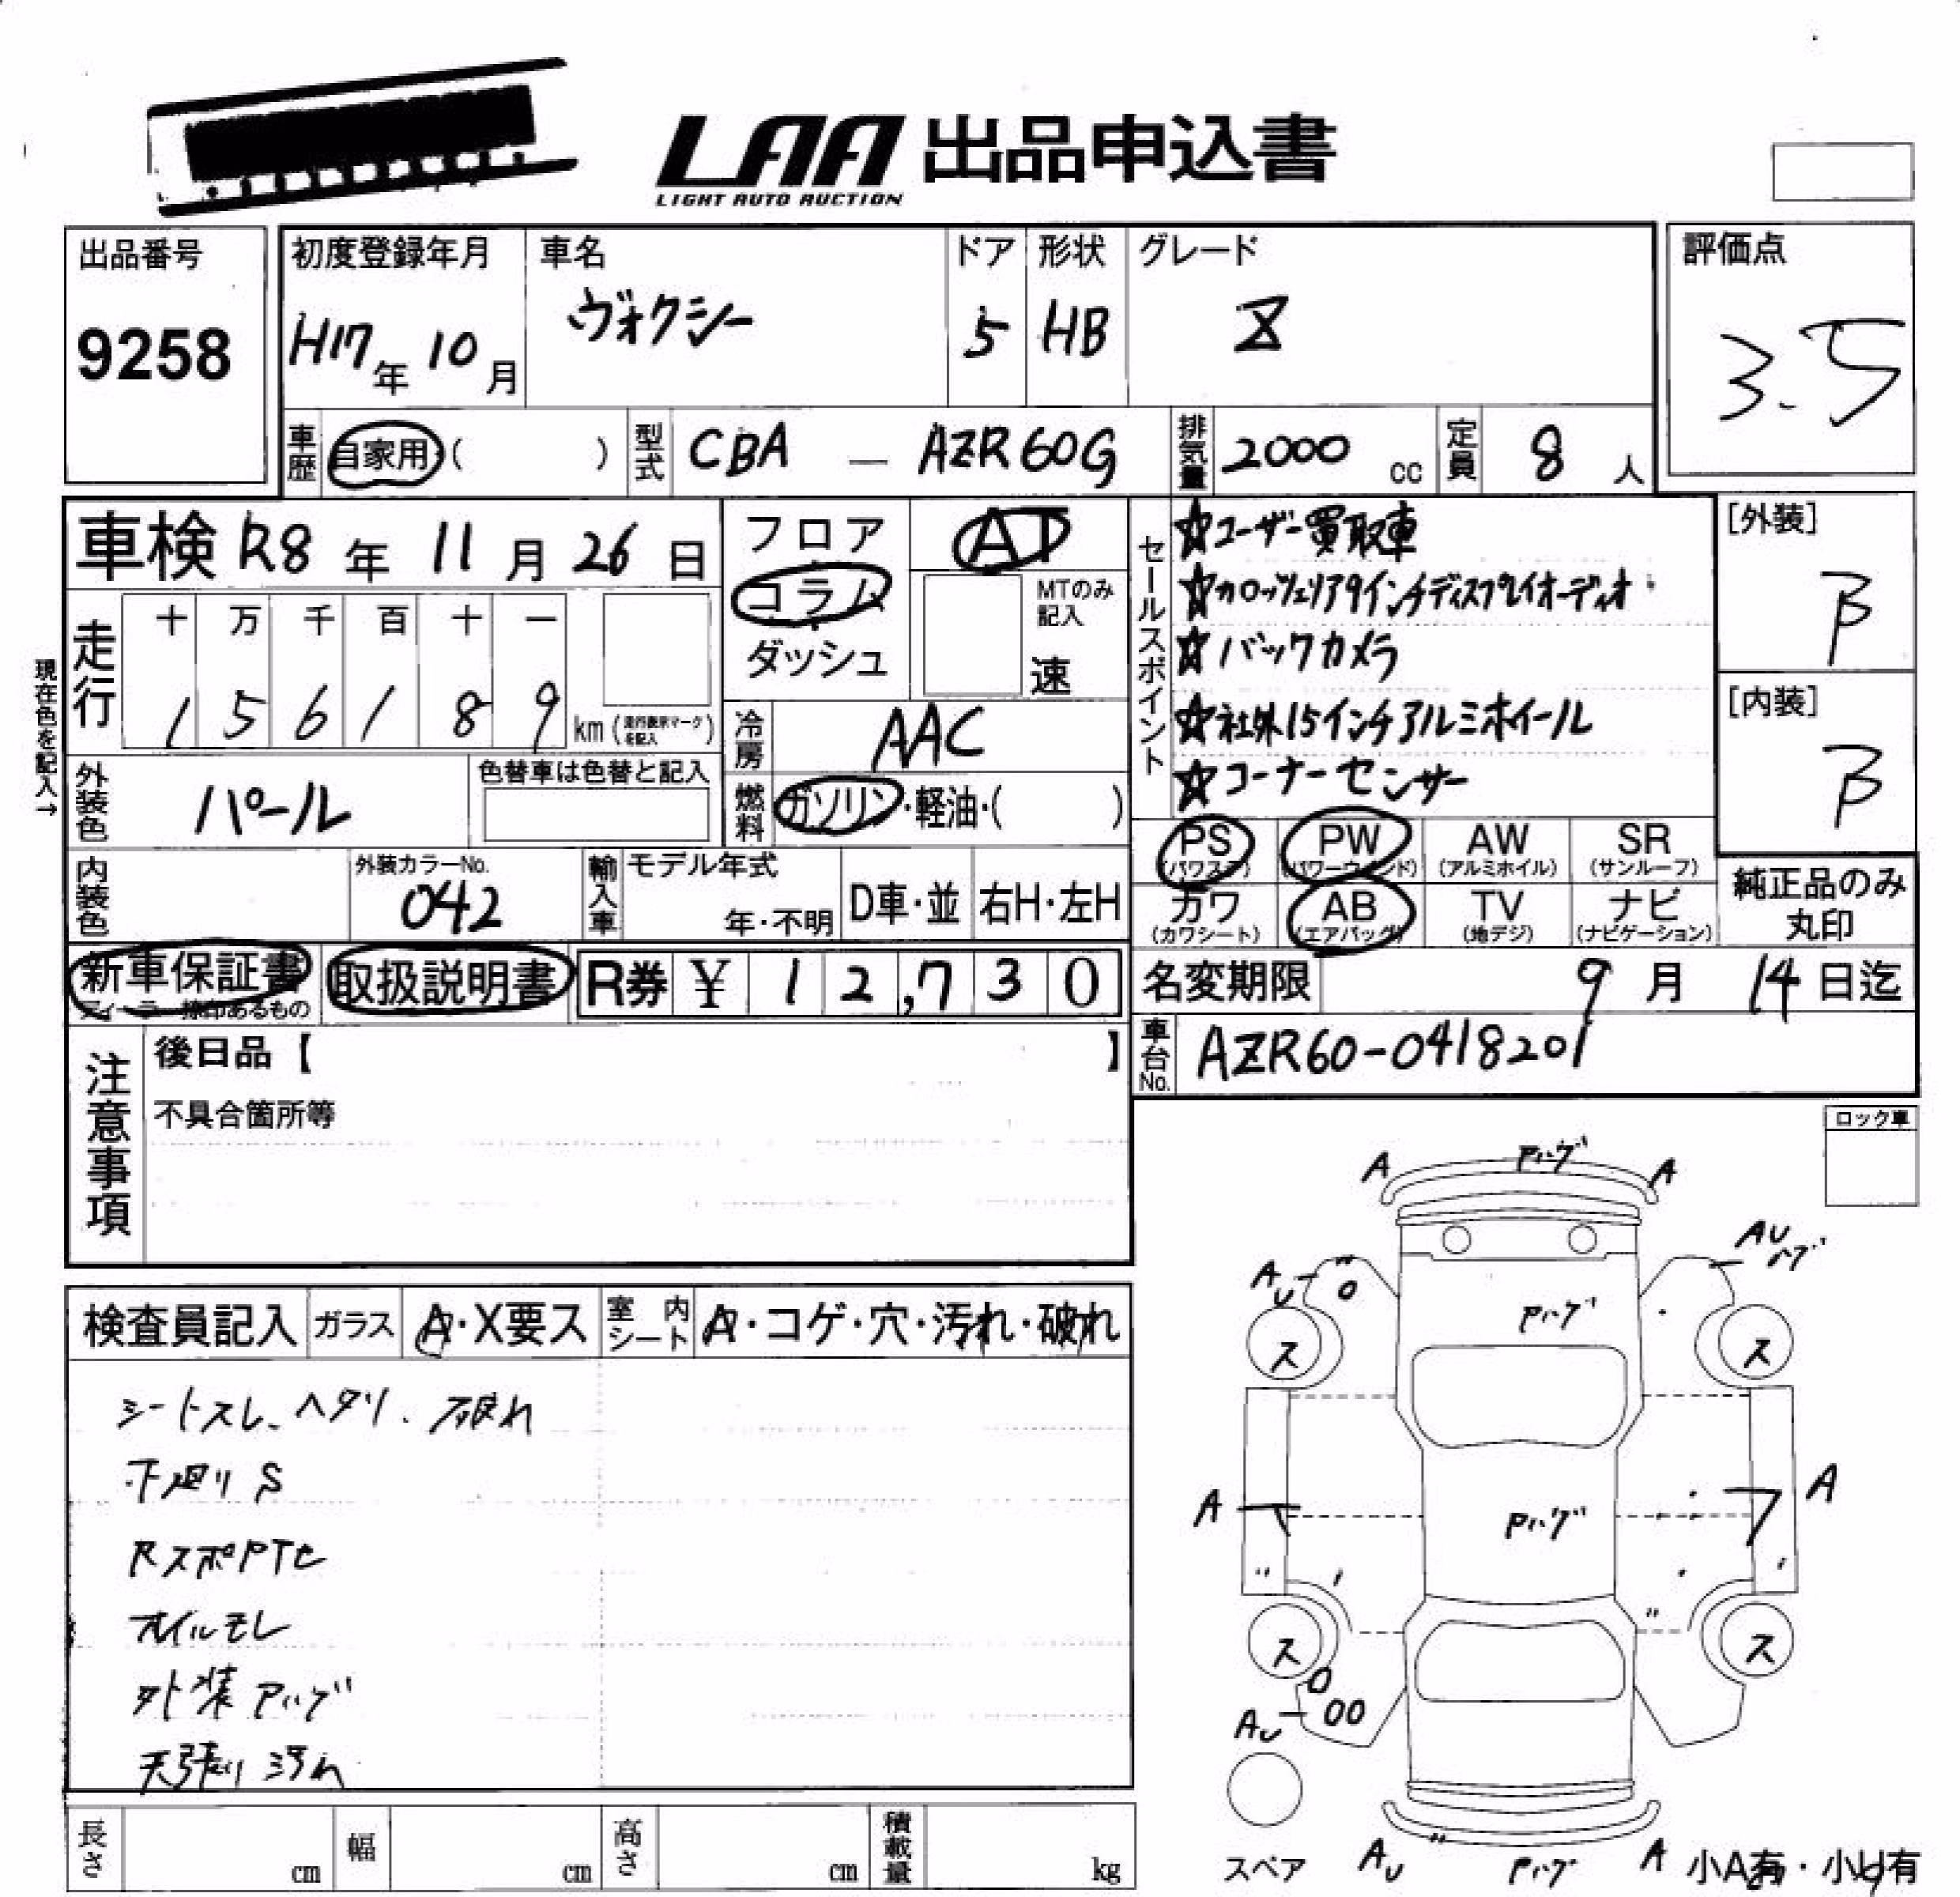 LAA 出品申込書
LIGHT AUTO AUCTION
出品番号
9258
初度登録年月
H17年 10月
車名
ヴォクシー
ドア
5
形状
HB
グレード
Z
評価点
3.5
車歴
自家用 ( )
型式
CBA - AZR60G
排気量
2000 cc
定員
8 人
車検 R8 年 11 月 26 日
フロア
コラム
ダッシュ
AT
MTのみ記入
速
セールスポイント
☆ユーザー買取車
☆カロッツェリア9インチディスプレイオーディオ
☆バックカメラ
☆社外15インチアルミホイール
☆コーナーセンサー
[外装]
B
[内装]
B
現在色を記入→
走行
十 万 千 百 十 一
1 5 6 1 8 9 km (走行表示マークを記入)
冷房
AAC
外装色
パール
色替車は色替と記入
燃料
ガソリン・軽油・( )
PS (パワステ)
PW (パワーウインド)
AW (アルミホイル)
SR (サンルーフ)
カワ (カワシート)
AB (エアバッグ)
TV (地デジ)
ナビ (ナビゲーション)
純正品のみ
丸印
内装色
外装カラーNo.
042
輸入車
モデル年式
年・不明
D車・並
右H・左H
新車保証書
ディーラー捺印あるもの
取扱説明書
R券 ¥ 12,730
名変期限 9 月 14 日迄
車台No.
AZR60-0418201
注意事項
後日品【 】
不具合箇所等
ロック車
検査員記入
ガラス
A・X要ス
室内シート
A・コゲ・穴・汚れ・破れ
シートスレ、ヘタリ、破れ
下廻りS
RスポPTヒ
オイルモレ
外装Pハゲ
天張り汚れ
A Pハゲ A
AU AUハゲ
Pハゲ
ス ス
A A
Pハゲ
ス ス
AU
スペア
AU Pハゲ A
小A有・小U有
長さ cm
幅 cm
高さ cm
積載量 kg